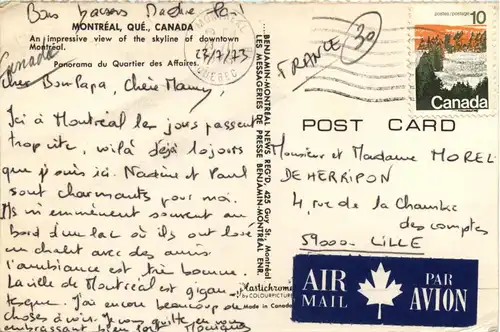 Bons baisers Nadine Paul
MONTRÉAL, QUÉ., CANADA
An impressive view of the skyline of downtown
Montréal.
Panorama du Quartier des Affaires.
Canada
27/7/73
QUÉBEC
Cher BonPapa, Chère Mamy,
Ici à Montréal les jours passent
trop vite, voilà déjà 10 jours
que je suis ici. Nadine et Paul
sont charmants pour moi.
Ils m'emmènent souvent au
bord d'un lac où ils ont loué
un chalet avec des amis
l'ambiance est très bonne.
La ville de Montréal est gigan
tesque. J'ai encore beaucoup de
choses à voir. Je vous quitte en vous
embrassant bien fort Monique
BENJAMIN-MONTREAL NEWS REG'D. 425 Guy St. Montréal
LES MESSAGERIES DE PRESSE BENJAMIN-MONTRÉAL ENR.
Plastichrome
by COLOURPICTURE
Made in Canada
FRANCE
30
postes/postage
10
Canada
POST CARD
Monsieur et Madame MOREL
DEHERRIPON
4, rue de la Chambre
des comptes
59000 - LILLE
AIR
MAIL
PAR
AVION